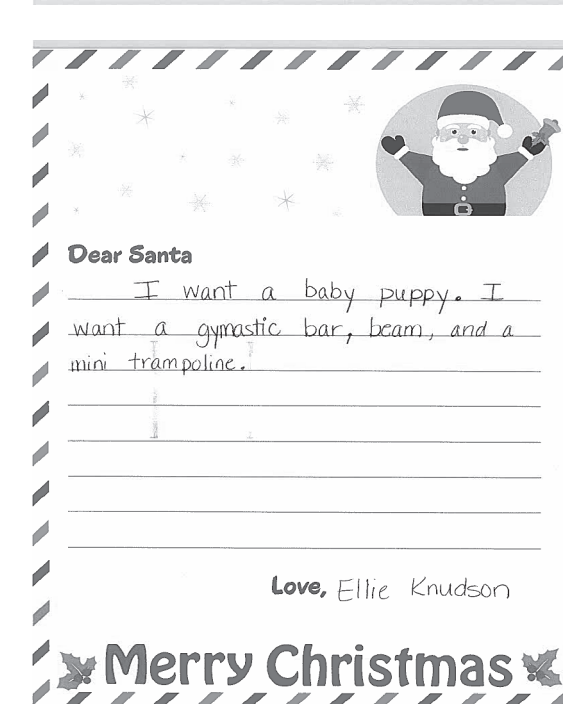 Dear Santa
I want a baby puppy. I
want a gymastic bar, beam, and a
mini trampoline.
Love, Ellie Knudson
Merry Christmas